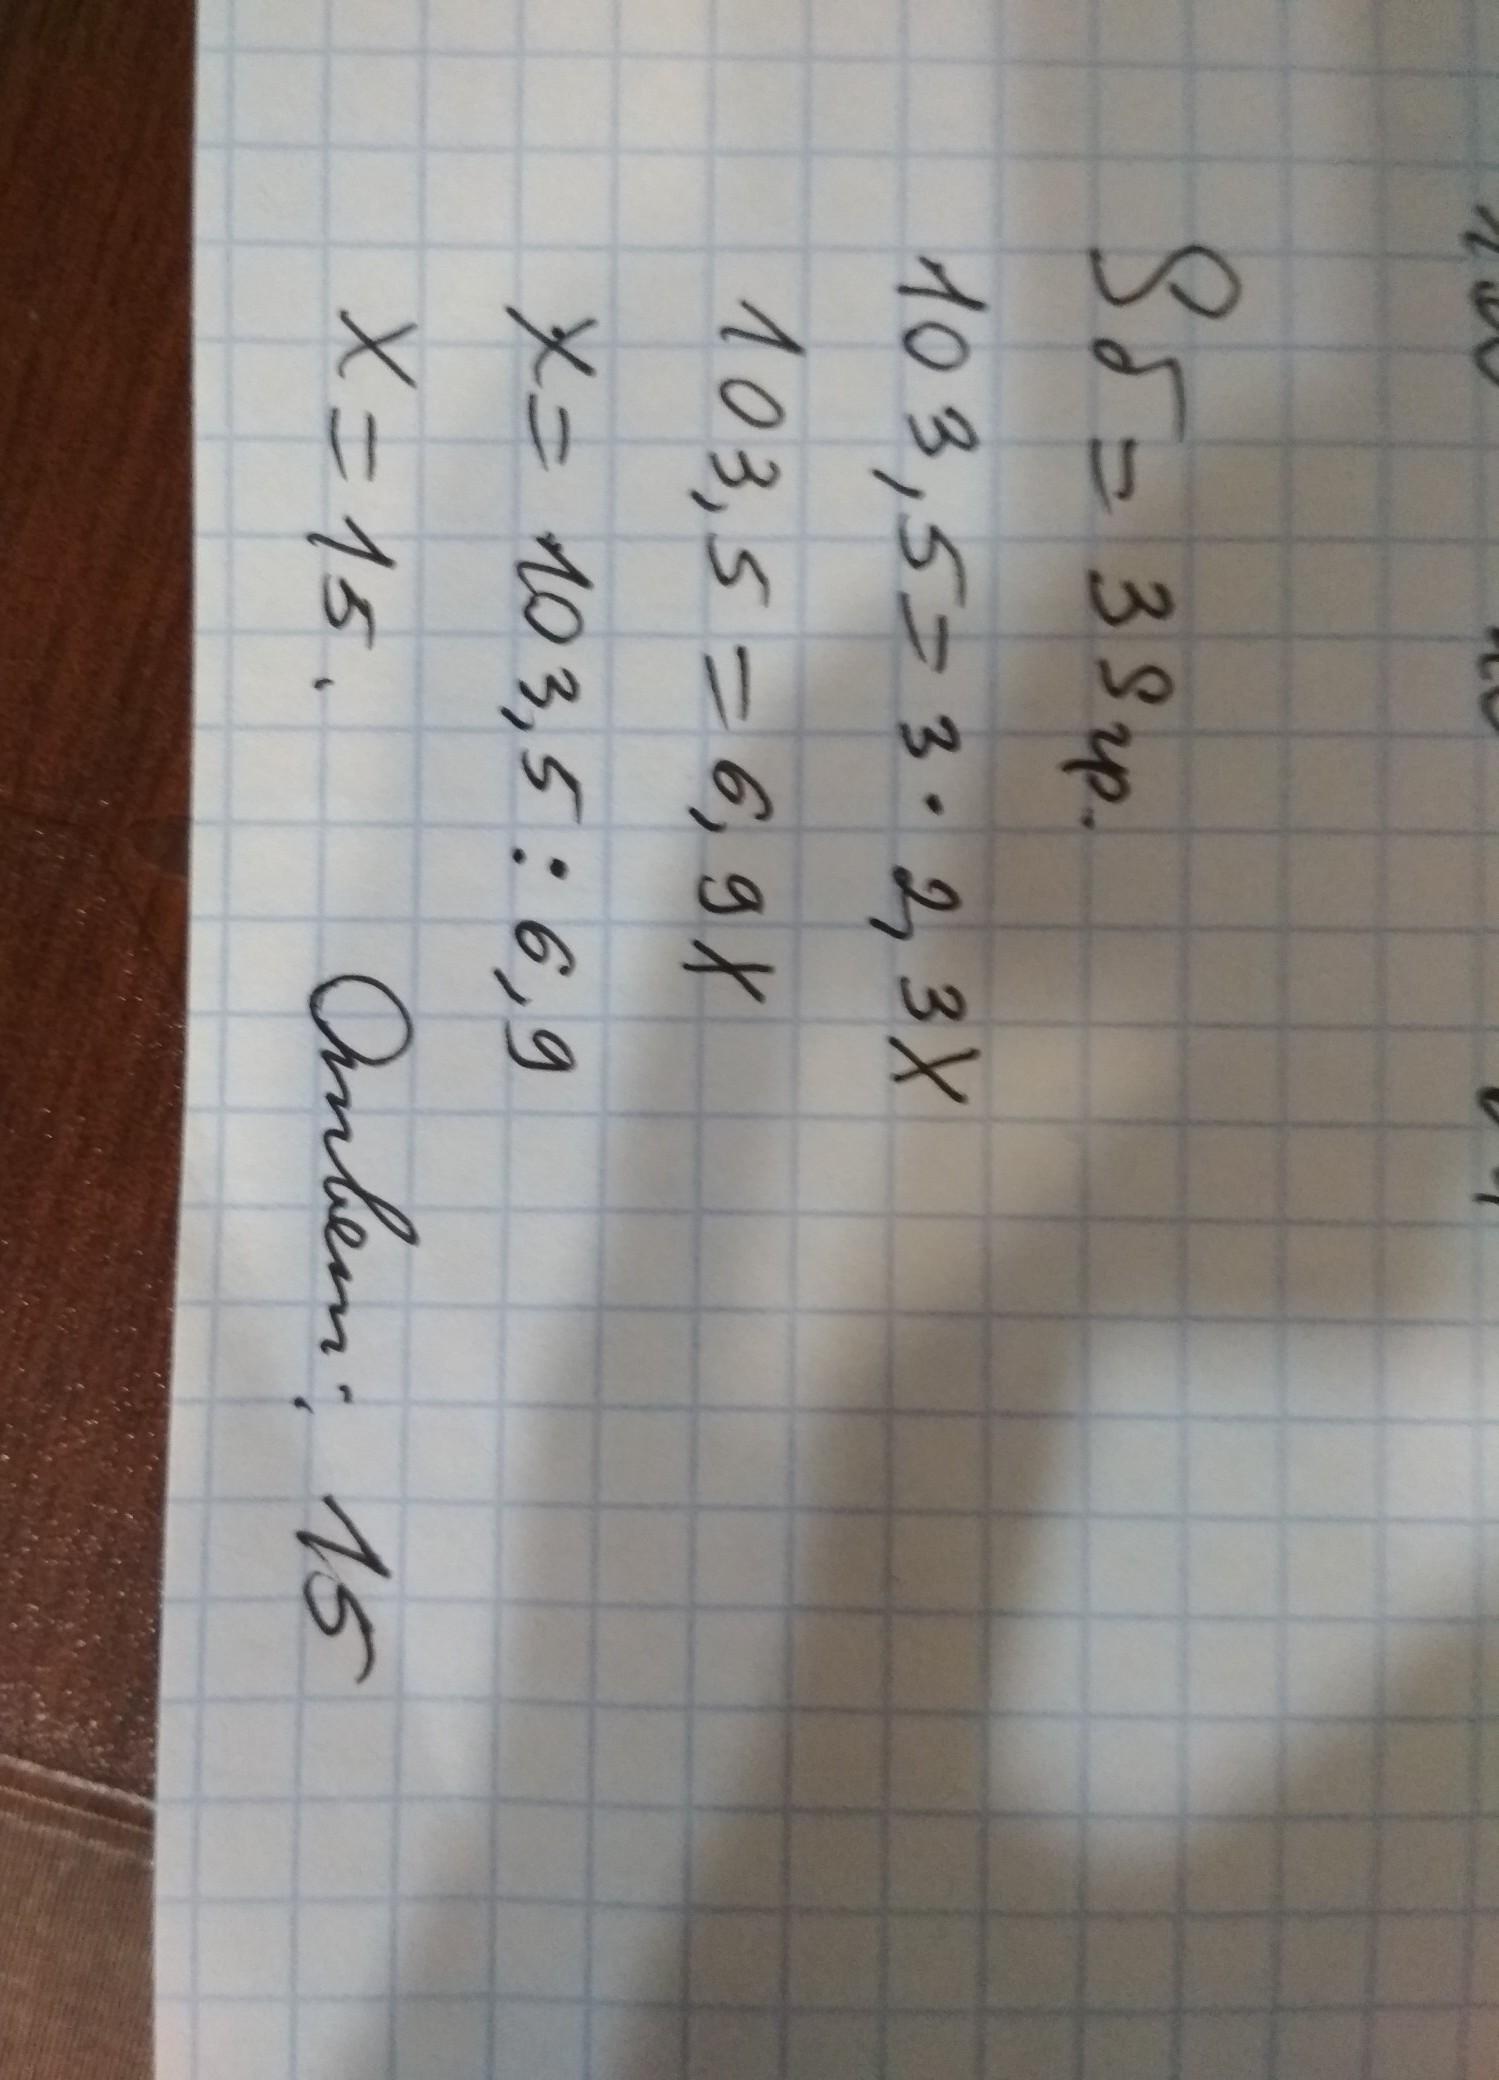 Sб = 3 Sup.
103,5 = 3 · 2,3x
103,5 = 6,9x
x = 103,5 : 6,9
x = 15. Ответ: 15